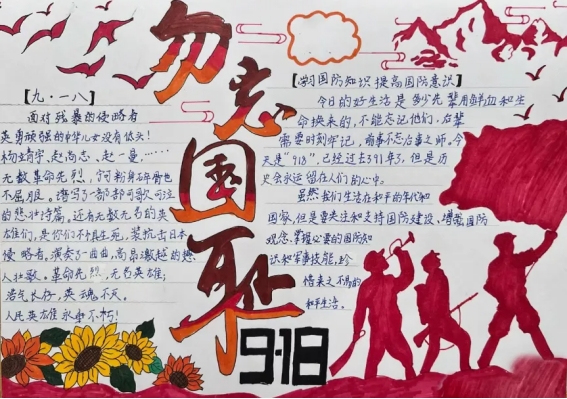 勿忘国耻
【九·一八】
面对残暴的侵略者
英勇顽强的中华儿女没有低头!
杨靖宇、赵尚志、赵一曼……
无数革命先烈,何粉身碎骨也
不屈服。谱写了一部部可歌可泣
的悲壮诗篇,还有无数无名的英
雄们,是你们不惧生死,英抗击日本
侵略者。演奏了一曲曲高昂激越的
人壮歌。革命先烈,无名英雄,
浩气长存,英魂不灭。
人民英雄永垂不朽!
【学习国防知识 提高国防意识】
今日的好生活是多少先辈用鲜血和生
命换来的,不能忘记他们,后辈
需要时刻牢记,前事不忘后事之师,今
天是"918",已经过去91年了,但是历
史会永远留在人们的心中。
虽然我们生活在和平的年代和
国家,但是要关注和支持国防建设,增强国防
观念、掌握必要的国防知
识和军事技能,珍
惜来之不易的
和平生活。
9·18